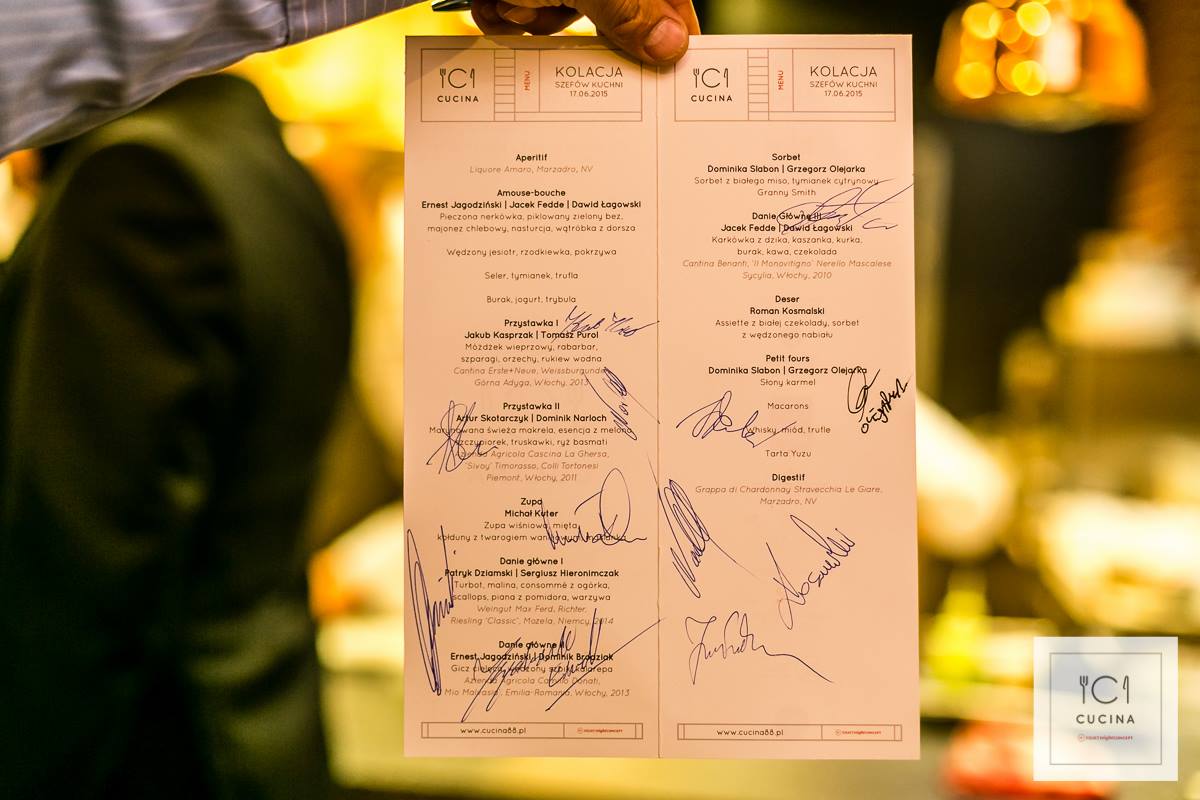 CUCINA
MENU
KOLACJA
SZEFÓW KUCHNI
17.06.2015
Aperitif
Liquore Amaro, Marzadro, NV
Amouse-bouche
Ernest Jagodziński | Jacek Fedde | Dawid Łagowski
Pieczona nerkówka, piklowany zielony bez,
majonez chlebowy, nasturcja, wątróbka z dorsza
Wędzony jesiotr, rzodkiewka, pokrzywa
Seler, tymianek, trufla
Burak, jogurt, trybula
Przystawka I
Jakub Kasprzak | Tomasz Purol
Móżdżek wieprzowy, rabarbar,
szparagi, orzechy, rukiew wodna
Cantina Erste+Neue, Weissburgunder
Górna Adyga, Włochy, 2013
Przystawka II
Artur Skotarczyk | Dominik Narloch
Marynowana świeża makrela, esencja z melona,
szczypiorek, truskawki, ryż basmati
Azienda Agricola Cascina La Ghersa,
'Sivoy' Timorasso, Colli Tortonesi
Piemont, Włochy, 2011
Zupa
Michał Kuter
Zupa wiśniowa, mięta,
kołduny z twarogiem
Danie główne I
Patryk Dziamski | Sergiusz Hieronimczak
Turbot, malina, consommé z ogórka,
scallops, piana z pomidora, warzywa
Weingut Max Ferd, Richter,
Riesling 'Classic', Mozela, Niemcy, 2014
Danie główne II
Ernest Jagodziński | Dominik Brodziak
Gicz cielęca, wędzony szpik, kalarepa
Azienda Agricola Camillo Donati,
Mio Malvasia', Emilia-Romania, Włochy, 2013
www.cucina88.pl
CUCINA
MENU
KOLACJA
SZEFÓW KUCHNI
17.06.2015
Sorbet
Dominika Slabon | Grzegorz Olejarka
Sorbet z białego miso, tymianek cytrynowy
Granny Smith
Danie Główne III
Jacek Fedde | Dawid Łagowski
Karkówka z dzika, kaszanka, kurka,
burak, kawa, czekolada
Cantina Benanti, 'Il Monovitigno' Nerello Mascalese
Sycylia, Włochy, 2010
Deser
Roman Kosmalski
Assiette z białej czekolady, sorbet
z wędzonego nabiału
Petit fours
Dominika Slabon | Grzegorz Olejarka
Słony karmel
Macarons
Whisky, miód, trufle
Tarta Yuzu
Digestif
Grappa di Chardonnay Stravecchia Le Giare,
Marzadro, NV
www.cucina88.pl
CUCINA